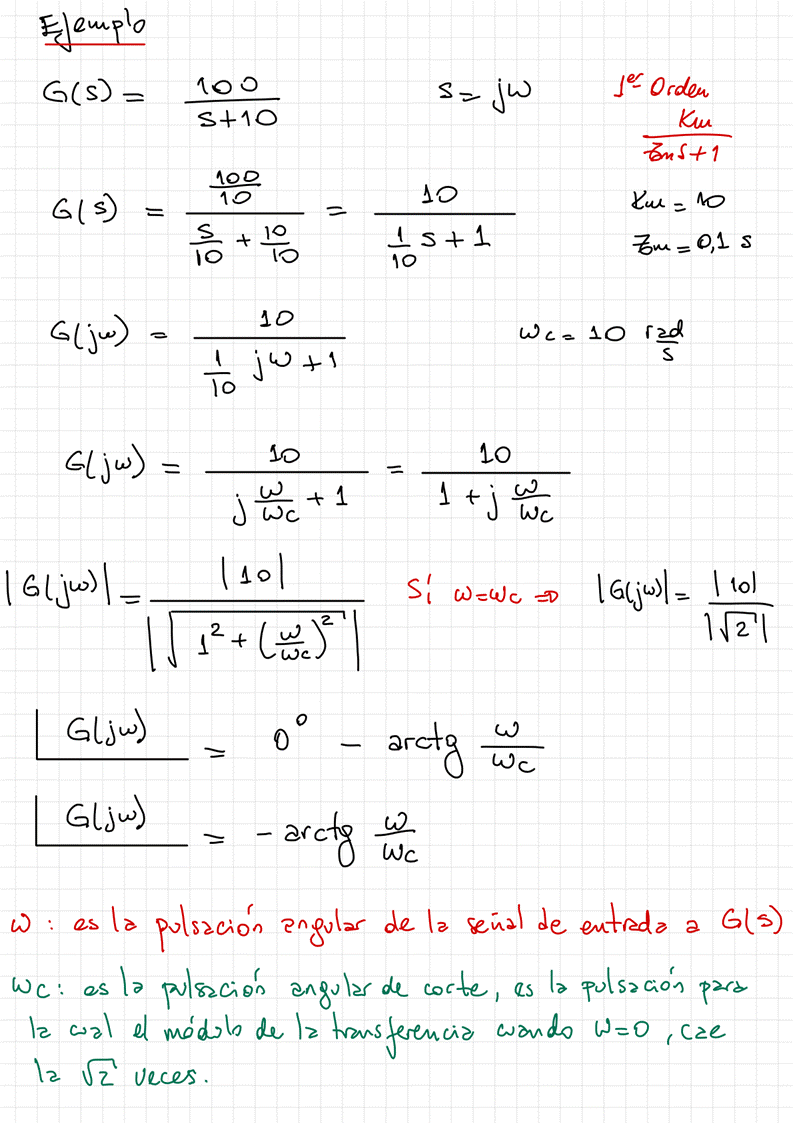 Ejemplo
G(s) = 100 / (s+10)    s = jω    1er Orden  Km / (τm s+1)
G(s) = (100/10) / (s/10 + 10/10) = 10 / (1/10 s + 1)    Km = 10
τm = 0,1 s
G(jω) = 10 / (1/10 jω + 1)    ωc = 10 rad/s
G(jω) = 10 / (j ω/ωc + 1) = 10 / (1 + j ω/ωc)
|G(jω)| = |10| / |√(1² + (ω/ωc)²)|    Sí ω=ωc ⇒ |G(jω)| = |10| / |√2|
∠G(jω) = 0° − arctg ω/ωc
∠G(jω) = − arctg ω/ωc
ω : es la pulsación angular de la señal de entrada a G(s)
ωc : es la pulsación angular de corte, es la pulsación para
la cual el módulo de la transferencia cuando ω=0, cae
la √2 veces.